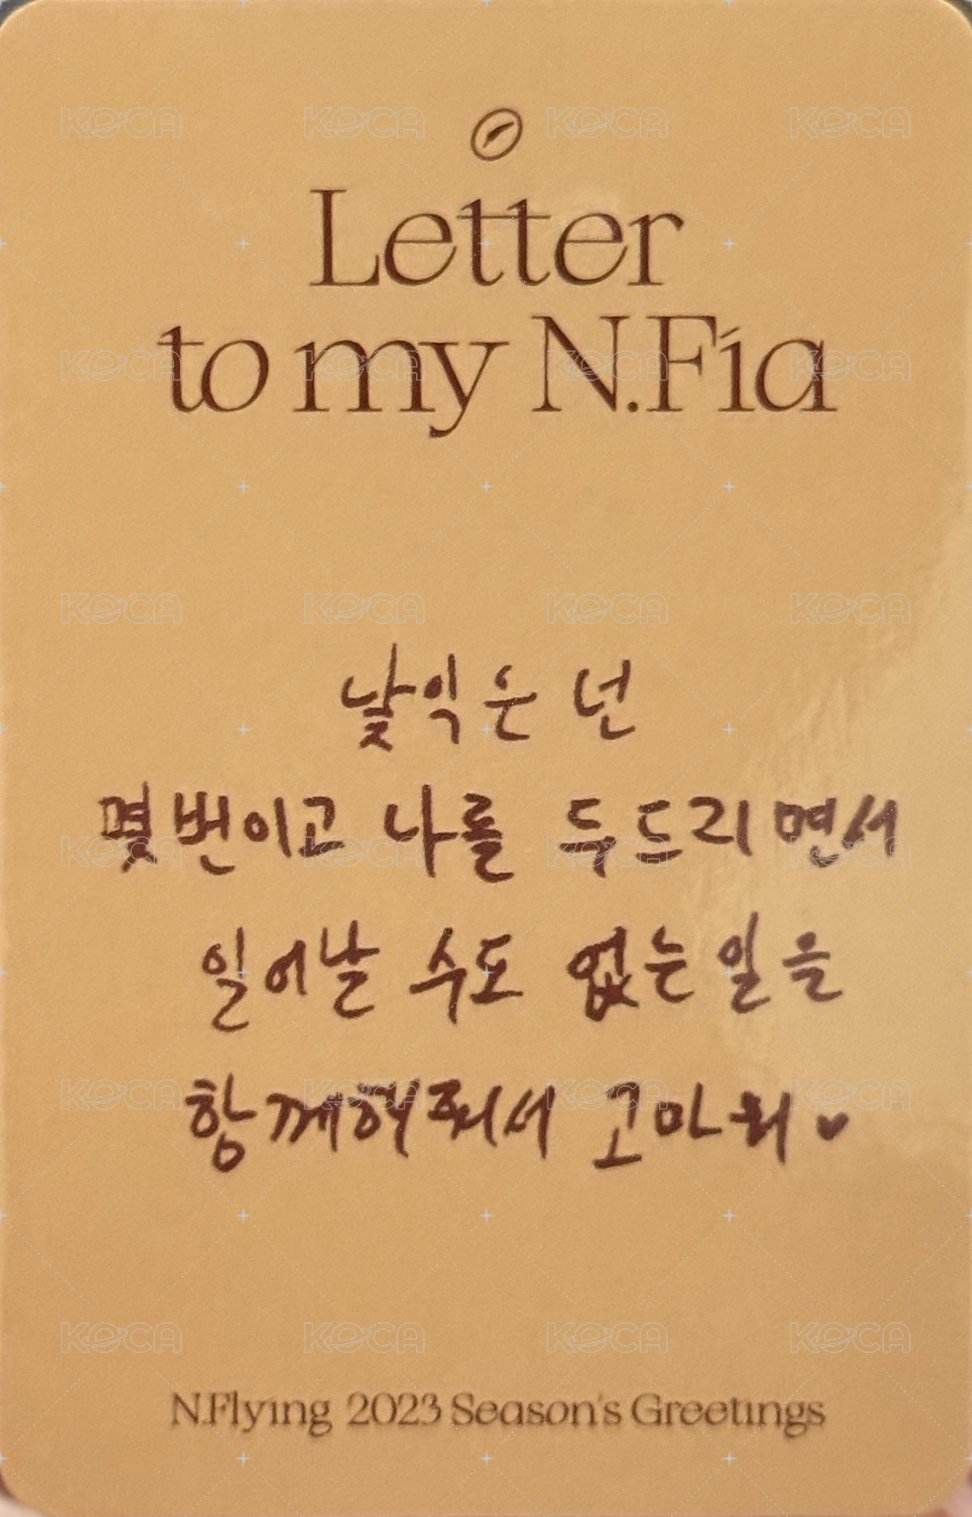 Letter
to my N.Fia
낯익은 넌
몇 번이고 나를 두드리면서
일어날 수도 없는 일을
함께해줘서 고마워♥
N.Flying 2023 Season's Greetings